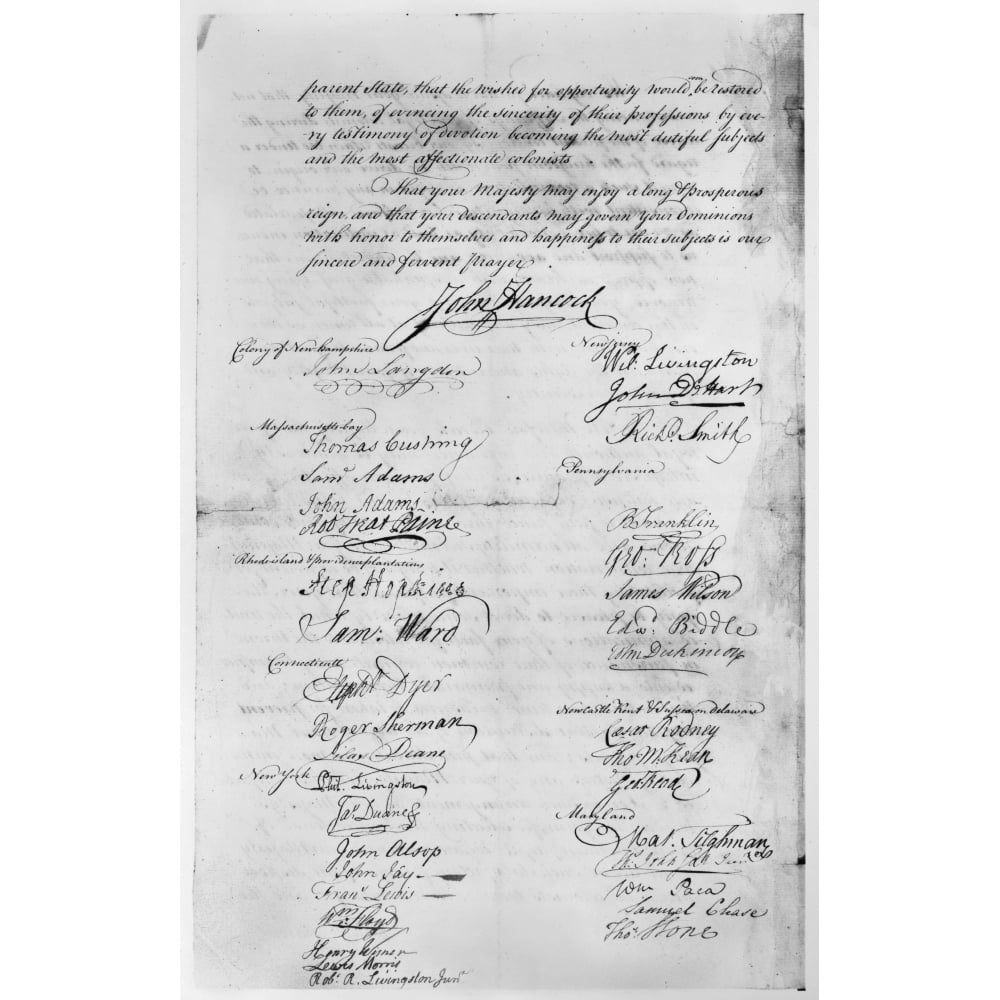 parent State, that the wished for opportunity would soon be restored
to them, of evincing the sincerity of their professions by eve-
ry testimony of devotion becoming the most dutiful subjects
and the most affectionate colonists.
That your Majesty may enjoy a long & prosperous
reign, and that your descendants may govern your Dominions
with honor to themselves and happiness to their subjects is our
sincere and fervent prayer.
John Hancock
Colony of New hampshire
John Langdon
Massachusetts-bay
Thomas Cushing
Saml Adams
John Adams
Robt Treat Paine
Rhode-island & providence plantations
Step Hopkins
Saml: Ward
Connecticutt
Elipht Dyer
Roger Sherman
Silas Deane
New York
Phil. Livingston
Jas Duane
John Alsop
John Jay
Frans Lewis
Wm Floyd
Henry Wisner
Lewis Morris
Robt: R. Livingston Junr
New Jersey
Wil: Livingston
John D Hart
Richd Smith
Pennsylvania
B Franklin
Geo: Ross
James Wilson
Edwd: Biddle
John Dickinson
Newcastle Kent & Sussex on Delaware
Caesar Rodney
Tho M:Kean
Geo: Read
Maryland
Mat. Tilghman
Ths Johnson Junr
Wm Paca
Samuel Chase
Thos Stone